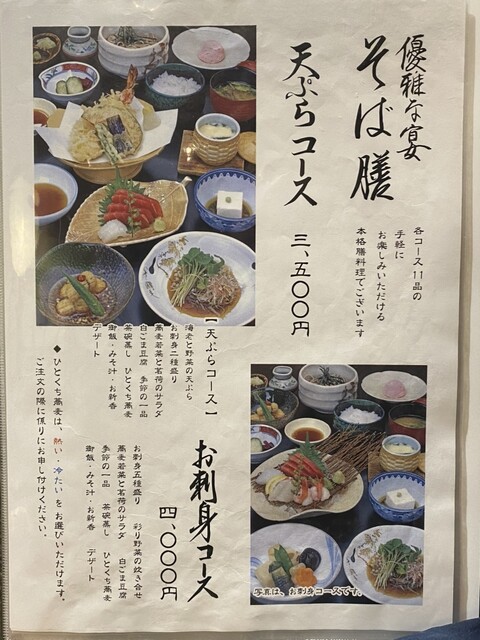 優雅な宴
そば膳
各コース11品の
手軽に
お楽しみいただける
本格膳料理でございます
天ぷらコース
三、五〇〇円
【天ぷらコース】
海老と野菜の天ぷら
お刺身二種盛り
蕎麦若菜と茗荷のサラダ
白ごま豆腐 季節の一品
茶碗蒸し ひとくち蕎麦
御飯・みそ汁・お新香
デザート
お刺身コース
四、〇〇〇円
お刺身五種盛り 彩り野菜の炊き合せ
蕎麦若菜と茗荷のサラダ 白ごま豆腐
季節の一品 茶碗蒸し ひとくち蕎麦
御飯・みそ汁・お新香 デザート
◆ひとくち蕎麦は、熱い・冷たいをお選びいただけます。
ご注文の際に係りにお申し付けください。
写真は、お刺身コースです。